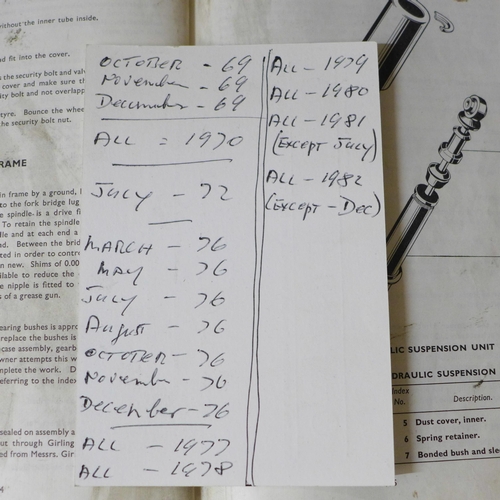 without the inner tube inside,
nd fit into the cover.
s the security bolt and valv
cover and make sure th
ity bolt and not overlapp
tyre. Bounce the whee
the security bolt nut.
RAME
in frame by a ground, l
to the fork bridge lug
e spindle is a drive fi
To retain the spindle
lle and at each end a
ed. Between the brid
ted in order to contro
n new. Shims of 0.00
ilable to reduce the
nipple is fitted to
s of a grease gun.
earing bushes is appro
replace the bushes is
case assembly, gearb
wner attempts this w
mplete the work. D
eferring to the index
sealed on assembly a
ut through Girling
ed from Messrs. Gir
4
OCTOBER - 69
November - 69
December - 69
ALL = 1970
July - 72
MARCH - 76
MAY - 76
July - 76
August - 76
OCTOBER - 76
November - 76
December - 76
ALL - 1977
ALL - 1978
ALL - 1979
ALL - 1980
ALL - 1981
(EXCEPT July)
ALL - 1982
(EXCEPT - DEC)
LIC SUSPENSION UNIT
DRAULIC SUSPENSION
Index
No.
Description.
5 Dust cover, inner.
6 Spring retainer.
7 Bonded bush and slee